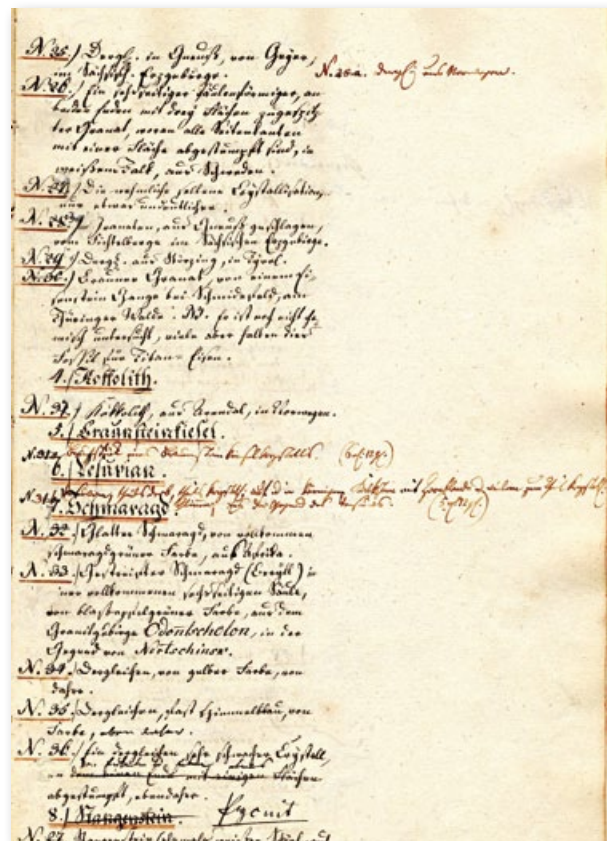 N. 25.) Dergl. in Gneuß, von Geyer,
im Sächsisch. Erzgebürge.
N. 25a. dergl. aus Norwegen.
N. 26.) Ein sechsseitiger säulenförmiger, an
beiden Enden mit drey Flächen zugespitz-
ter Granat, woran alle Seitenkanten
mit einer Fläche abgestumpft sind, in
weißem Talk, aus Schweden.
N. 27.) Die nehmliche seltene Crystallisation,
nur etwas undeutlicher.
N. 28.) Granaten, aus Gneuß geschlagen,
vom Fichtelberge im Sächsischen Erzgebürge.
N. 29.) Dergl. aus Stirzing, in Tyrol.
N. 30.) Brauner Granat, von einem Ei-
senstein Gange bei Schmidefeld, am
Thüringer Walde. NB. Er ist noch nicht che-
misch untersucht, viele aber halten dies
Fossil für Titan-Eisen.
4.) Kokkolith.
N. 31.) Kokkolith, aus Arendal, in Norwegen.
5.) Braunsteinkiesel.
N. 31a.
6.) Vesuvian.
N. 31b.
7. Schmaragd.
N. 32.) Glatter Schmaragd, von vollkommen
schmaragdgrüner Farbe, aus Afrika.
N. 33.) Gestreifter Schmaragd (Berill) in
einer vollkommenen sechsseitigen Säule,
von blaßapfelgrüner Farbe, aus dem
Granitgebirge Odontschelon, in der
Gegend von Nertschinsk.
N. 34.) Dergleichen, von gelber Farbe, von
daher.
N. 35.) Dergleichen, fast himmelblau, von
Farbe, eben daher.
N. 36.) Ein dergleichen sehr schwacher Crystall,
an dem einen Ende mit einigen Flächen
abgestumpft, ebendaher.
8.) Stangenstein. Pycnit
N. 37. Stangenstein